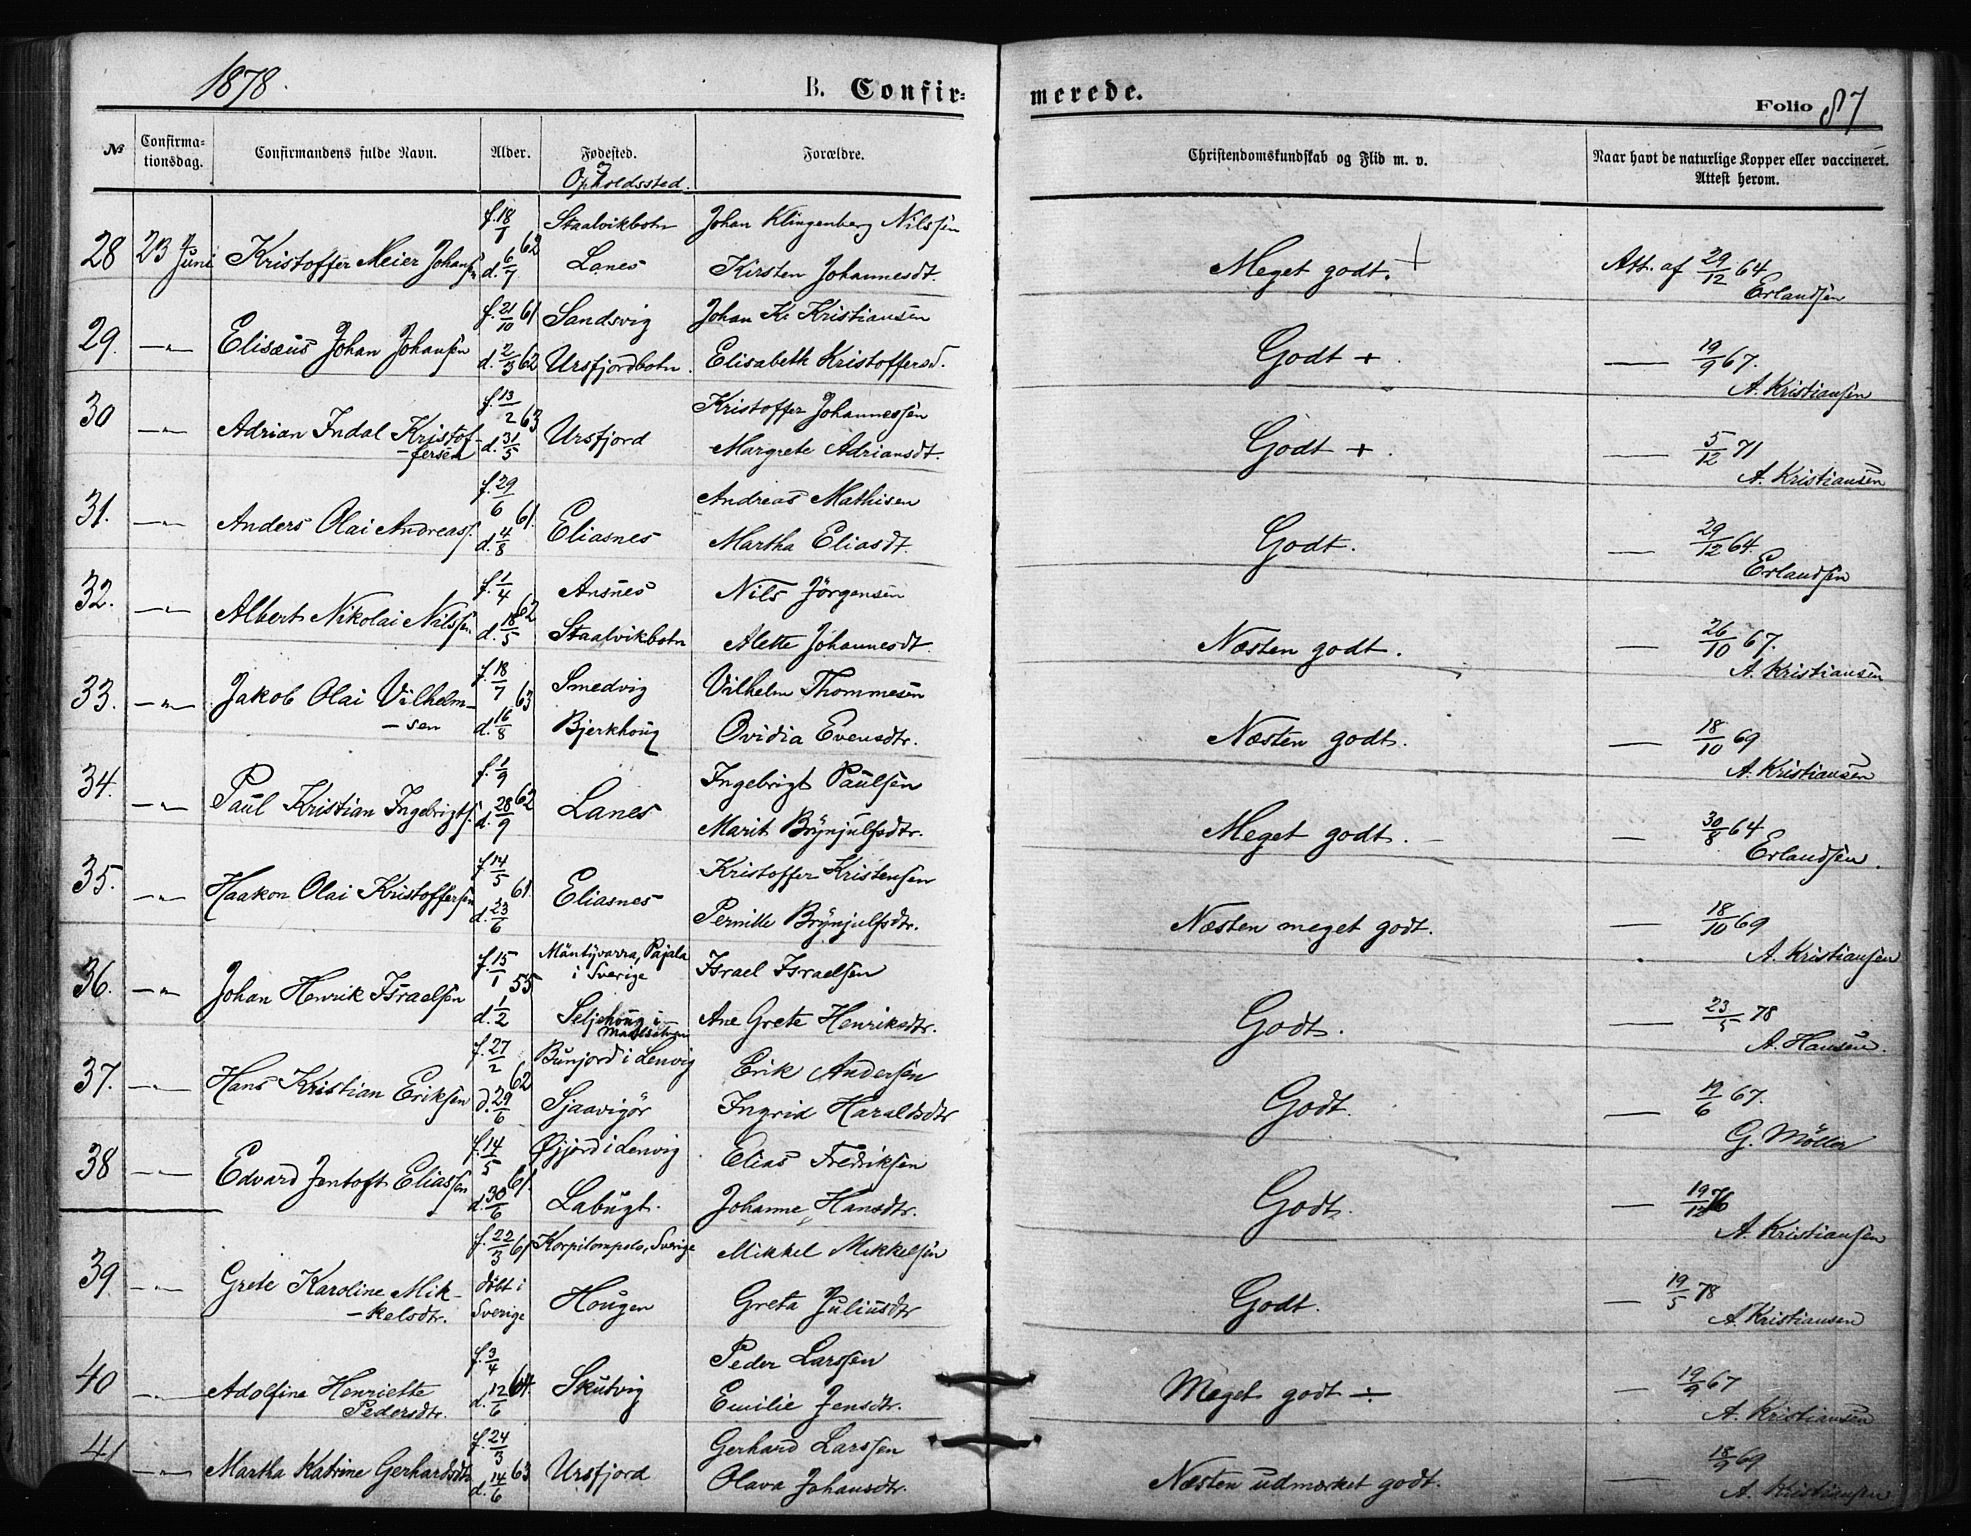 1878.
B. Confir-
merede.
Folio 87
No
Confirma-
tionsdag.
Confirmandens fulde Navn.
Alder.
Fødested.
Forældre.
Christendomskundskab og Flid m. v.
Naar havt de naturlige Kopper eller vaccineret.
Attest herom.
Opholdssted.
f. 18/1 Staalvikbotn Johan Klingenberg Nilssen
28 23 Juni Kristoffer Meier Johansen 62 d. 6/7 Lanes Kirsten Johannesdt. Meget godt. + Att. af 29/12 64
Erlandsen
f. 21/10 61 Sandsvig Johan Kr Kristiansen
29. —"— Elisæus Johan Johansen d. 2/3 62 Ursfjordbotn. Elisabeth Kristoffersd. Godt + . — 19/9 67.
A. Kristiansen
30 f. 13/2 63 Kristoffer Johannessen
—"— Adrian Indal Kristof- d. 31/5 Ursfjord Margrete Adriansdt. Godt + . — 5/12 71
-fersen
A. Kristiansen
f. 29/6 61. Andreas Mathisen
31. —"— Anders Olai Andreass. d. 4/8 Eliasnes Martha Eliasdt. Godt. — 29/12 64.
Erlandsen
32. f. 1/4 62 Ansnes Nils Jörgensen
—"— Albert Nikolai Nilssen d. 18/5 Staalvikbotn Alette Johannesdt. Næsten godt. — 26/10 67.
A. Kristiansen
33. f. 18/7 63 Smedvig Vilhelm Thommesen
—"— Jakob Olai Vilhelm- d. 16/8 Bjerkhoug Ovidia Evensdtr. Næsten godt. — 18/10 69
-sen
A. Kristiansen
34. f. 1/9 62 Ingebrigt Paulsen
—"— Paul Kristian Ingebrigts. d. 28/9 Lanes Marit Brynjulfsdtr. Meget godt. — 30/8 64
Erlandsen.
35. f. 14/5 61. Kristoffer Kristensen
—"— Haakon Olai Kristoffersen d. 23/6 Eliasnes Pernille Brynjulfsdtr. Næsten meget godt. — 18/10 69
A. Kristiansen
f. 15/1 55 Mäntyvarra, Pajala
i Sverige Israel Israelsen
36. —"— Johan Henrik Israelsen d. 1/2 Seljehoug i
Maalselven Ane Grete Henriksdtr. Godt. — 23/5 78
A. Hansen.
f. 27/2 62 Bunjord i Lenvig Erik Andersen
37. —"— Hans Kristian Eriksen d. 29/6 Sjaavigör Ingrid Haraldsdtr Godt. — 12/6 67.
G. Möller
f. 14/5 61. Øyjord i Lenvig Elias Fredriksen
38 —"— Edvard Jentoft Eliassen d. 30/6 Labugt. Johanne Hansdtr. Godt. — 19/12 76
A. Kristiansen
f. 22/3 61 Korpilompolo, Sverige Mikkel Mikkelsen
39. —"— Grete Karoline Mik- döbt i Hougen Greta Juliusdtr Godt. — 19/5 78
-kelsdtr. Sverige
A. Kristiansen
f. 3/4 64. Peder Larssen
40 —"— Adolfine Henriette d. 12/6 Skutvig Emilie Jensdtr. Meget godt ÷ — 19/9 67
Pedersdtr.
A. Kristiansen
f. 24/3 63 Gerhard Larssen
41 —"— Martha Katrine Gerhardsdtr d. 14/6 Ursfjord Olava Johansdtr. Næsten udmærket godt. — 18/9 69
A. Kristiansen